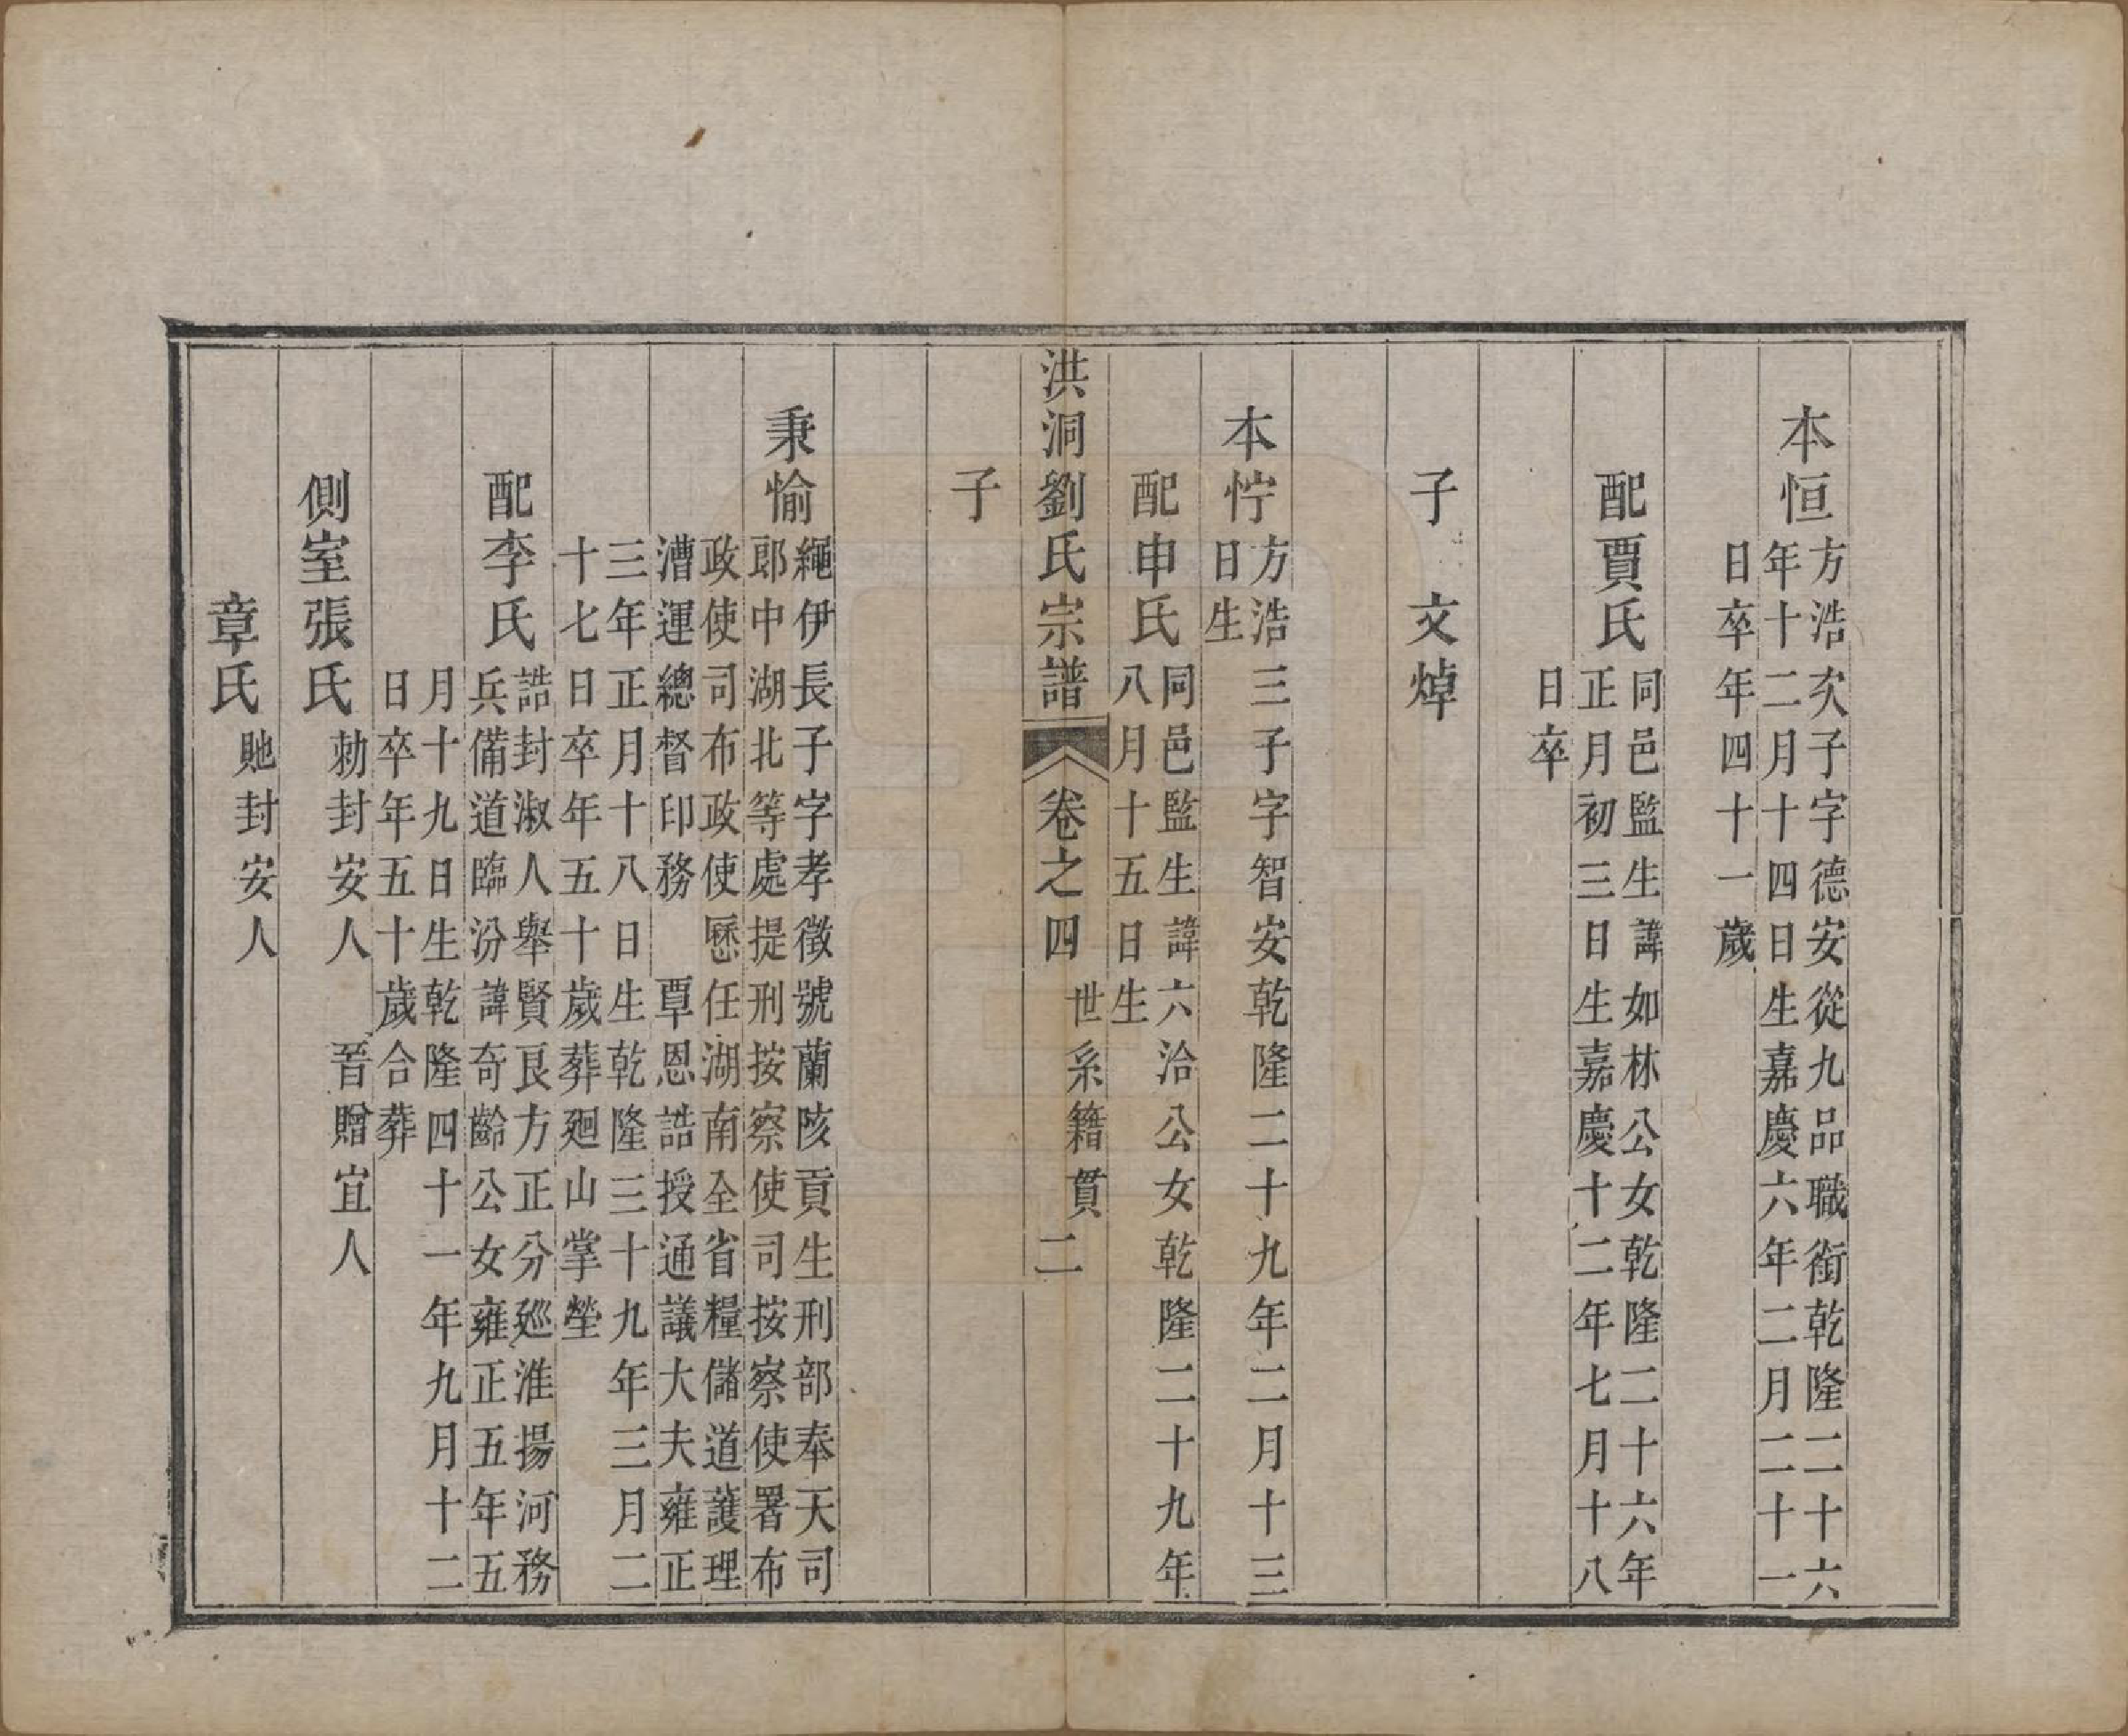 本恒
方浩次子字德安從九品職銜乾隆二十六
年十二月十四日生嘉慶六年二月二十一
日卒年四十一歲
配賈氏
同邑監生諱如林公女乾隆二十六年
正月初三日生嘉慶十二年七月十八
日卒
子 文焯
本㤖
方浩三子字智安乾隆二十九年二月十三
日生
配申氏
同邑監生諱六洽公女乾隆二十九年
八月十五日生
洪洞劉氏宗譜 卷之四 世系籍貫 二
子
秉愉
繩伊長子字孝徵號蘭陔貢生刑部奉天司
郎中湖北等處提刑按察使司按察使署布
政使司布政使歷任湖南全省糧儲道護理
漕運總督印務 覃恩誥授通議大夫雍正
三年正月十八日生乾隆三十九年三月二
十七日卒年五十歲葬廻山掌塋
配李氏
誥封淑人舉賢良方正分廵淮揚河務
兵備道臨汾諱奇齡公女雍正五年五
月十九日生乾隆四十一年九月十二
日卒年五十歲合葬
側室張氏 勅封安人 晉贈宜人
章氏 貤封安人